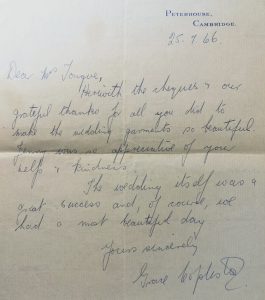 PETERHOUSE,
CAMBRIDGE.
25. 7. 66
Dear Mrs Tongue,
Herewith the cheques & our
grateful thanks for all you did to
make the wedding garments so beautiful
Jenny was so appreciative of your
help & kindness.
The wedding itself was a
great success and, of course, we
had a most beautiful day
Yours sincerely
Grace